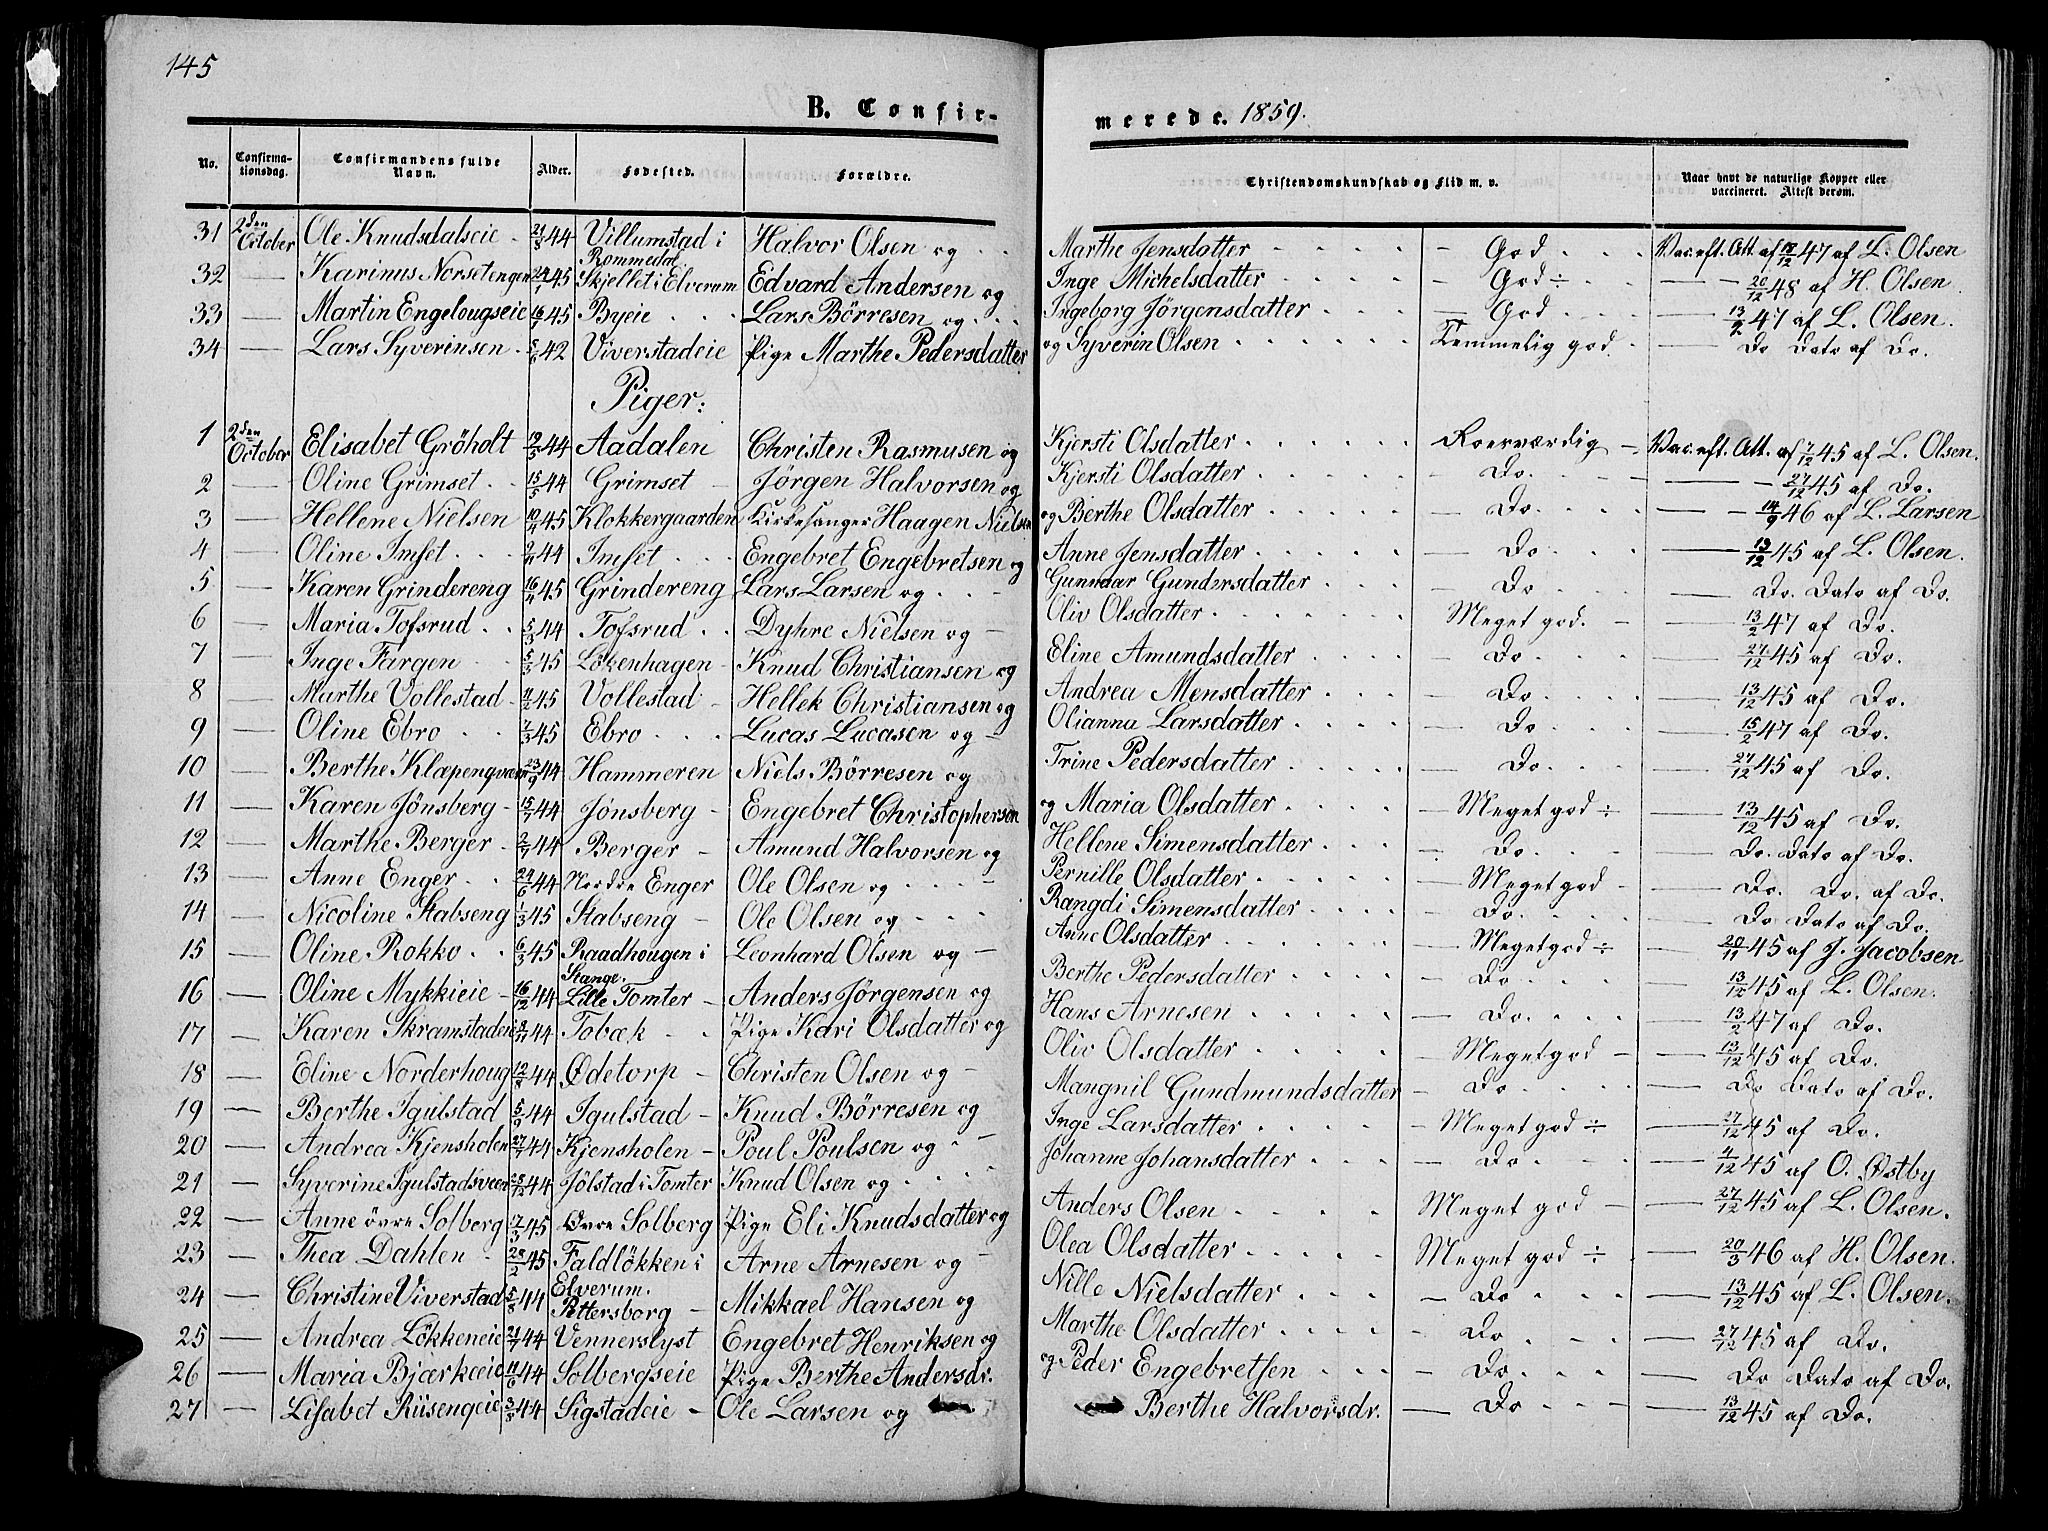 145
B. Confir-
merede. 1859.
No. Confirma-tionsdag. Confirmandens fulde Navn. Alder. Fødested. Forældre. Christendomskundskab og Flid m. v. Naar havt de naturlige Kopper eller vaccineret. Attest derom.
31 2den October Ole Knudsdalseie 44 Villumstad i Rommedal Halvor Olsen og Marthe Jensdatter God Vac. eft. Att. af 18/12 47 af L. Olsen
32 — Karinus Norsetengen 45 Skjellet i Elverum Edvard Andersen og Inge Michelsdatter — God ÷ — 20/12 48 af H. Olsen
33 — Martin Engelougseie 16/1 45 Byeie Lars Börresen og Ingeborg Jörgensdatter — God — 13/2 47 af L. Olsen.
34 — Lars Syverinsen 42 Viverstadeie Pige Marthe Pedersdatter og Syverin Olsen Temmelig god. — Do Dato af Do.
Piger:
1 2den October Elisabet Gröholt 44 Aadalen Christen Rasmusen og Kjersti Olsdatter Roesværdig — Vac. eft. Att. af 7/12 45 af L. Olsen.
2 — Oline Grimset 15/5 44 Grimset Jörgen Halvorsen og Kjersti Olsdatter — Do. — 27/12 45 af Do.
3 — Hellene Nielsen 45 Klokkergaarden Kirkesanger Haagen Nielsen og Berthe Olsdatter — Do. — 14/9 46 af L. Larsen
4 — Oline Imset 44 Imset Engebret Engebretsen og Anne Jensdatter — Do — 13/12 45 af L. Olsen.
5 — Karen Grindereng 45 Grindereng Lars Larsen og Gunnaar Gundersdatter — Do — Do. Dato af Do.
6 — Maria Tofsrud 5/3 44 Tofsrud Dyhre Nielsen og — Oliv Olsdatter Meget god. — 13/2 47 af Do.
7 — Inge Fargen 45 Lökenhagen Knud Christiansen og Eline Amundsdatter — Do — 27/12 45 af Do.
8 — Marthe Vollestad 11/2 45 Vollestad Hellek Christiansen og Andrea Mensdatter — Do — 13/12 45 af Do.
9 — Oline Ebro 7/3 45 Ebro Lucas Lucasen og — Olianna Larsdatter — Do — 15/2 47 af Do.
10 — Berthe Klæpengværn 23/9 44 Hammeren Niels Börresen og Trine Pedersdatter — Do — 27/12 45 af Do.
11 — Karen Jönsberg 15/7 44 Jönsberg — Engebret Christophersen og Maria Olsdatter — Meget god ÷ — 13/12 45 af Do.
12 — Marthe Berger 2/7 44 Berger — Amund Halvorsen og Hellene Simensdatter — Do — Do. Dato af Do.
13 — Anne Enger 24/6 44 Nordre Enger Ole Olsen og Pernille Olsdatter — Meget god — Do. Do. af Do.
14 — Nicoline Stabseng 1/3 45 Stabseng — Ole Olsen og Rangdi Simensdatter — Do. — Do Dato af Do.
15 — Oline Rokko 6/3 45 Raadhougen i Stange. Leonhard Olsen og — Anne Olsdatter — Meget god ÷ — 20/11 45 af J. Jacobsen
16 — Oline Mykkieie 16/12 44 Lille Tomter — Anders Jörgensen og Berthe Pedersdatter — Do — 13/12 45 af L. Olsen.
17 — Karen Skramstadeie 44 Tobæk Pige Kari Olsdatter og Hans Arnesen — Do. — 13/2 47 af Do.
18 — Eline Norderhoug 12/8 44 Ødetorp — Christen Olsen og — Oliv Olsdatter — Meget god — 13/12 45 af Do.
19 — Berthe Igulstad 5/9 44 Igulstad — Knud Börresen og Mangnil Gundmundsdatter — Do — Do Dato af Do.
20 — Andrea Kjensholen 27/7 44 Kjensholen — Poul Poulsen og Inge Larsdatter — Meget god ÷ — 27/12 45 af Do.
21 — Syverine Igulstadsveen 44 Jölstad i Tomter Knud Olsen og Johanne Johansdatter — Do — 4/12 45 af O. Østby
22 — Anne övre Solberg 7/3 45 Øvre Solberg Pige Eli Knudsdatter og Anders Olsen Meget god — 27/12 45 af L. Olsen.
23 — Thea Dahlen 45 Faldlökken i Elverum. Arne Arnesen og — Olea Olsdatter Meget god ÷ — 20/3 46 af H. Olsen.
24 — Christine Viverstad 5/8 44 Pettersborg — Mikkael Hansen og Nille Nielsdatter — Do — 13/12 45 af L. Olsen.
25 — Andrea Lökkeneie 44 Vennerslyst Engebret Henriksen og Marthe Olsdatter — Do — 27/12 45 af Do.
26 — Maria Bjærkeeie 11/6 44 Solbergseie Pige Berthe Andersdr. og Peder Engebretsen — Do — Do Dato af Do.
27 — Lisabet Riisengeie 3/8 44 Sigstadeie — Ole Larsen og Berthe Halvorsdr. — Do — 13/12 45 af Do.